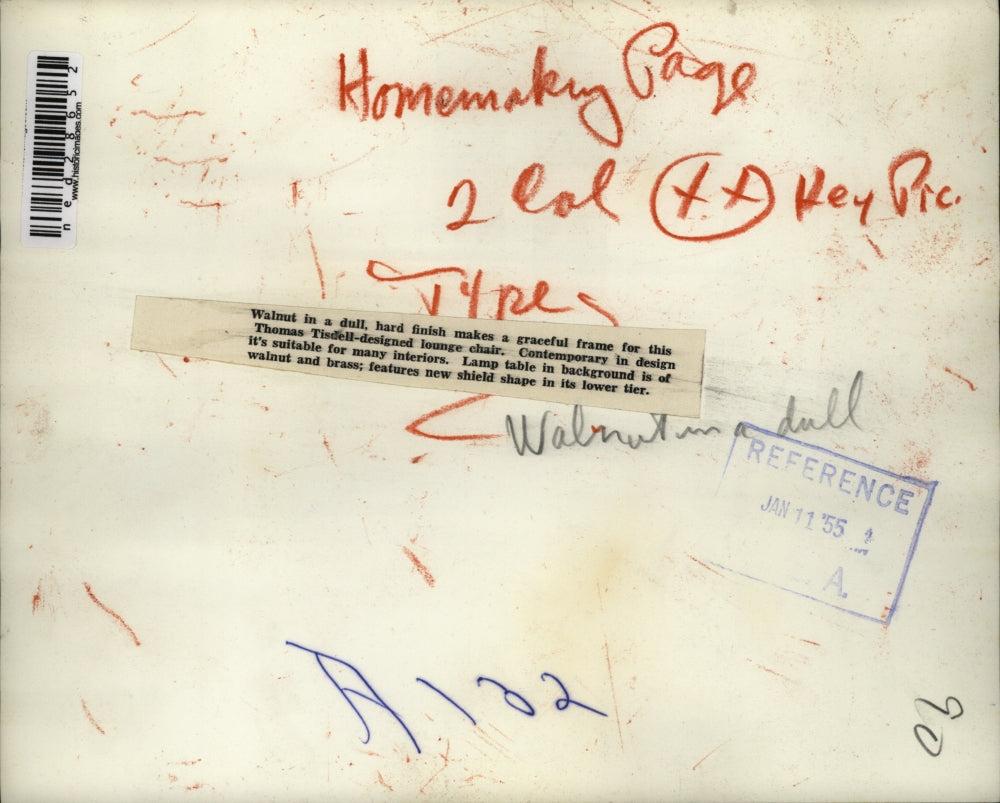 Homemaking Page
2 Col XX Key Pic.
Type
Walnut in a dull, hard finish makes a graceful frame for this
Thomas Tisdell-designed lounge chair. Contemporary in design
it's suitable for many interiors. Lamp table in background is of
walnut and brass; features new shield shape in its lower tier.
Walnut in a dull
REFERENCE
JAN 11 '55
A.
A 122
ned28652
www.historicimages.com